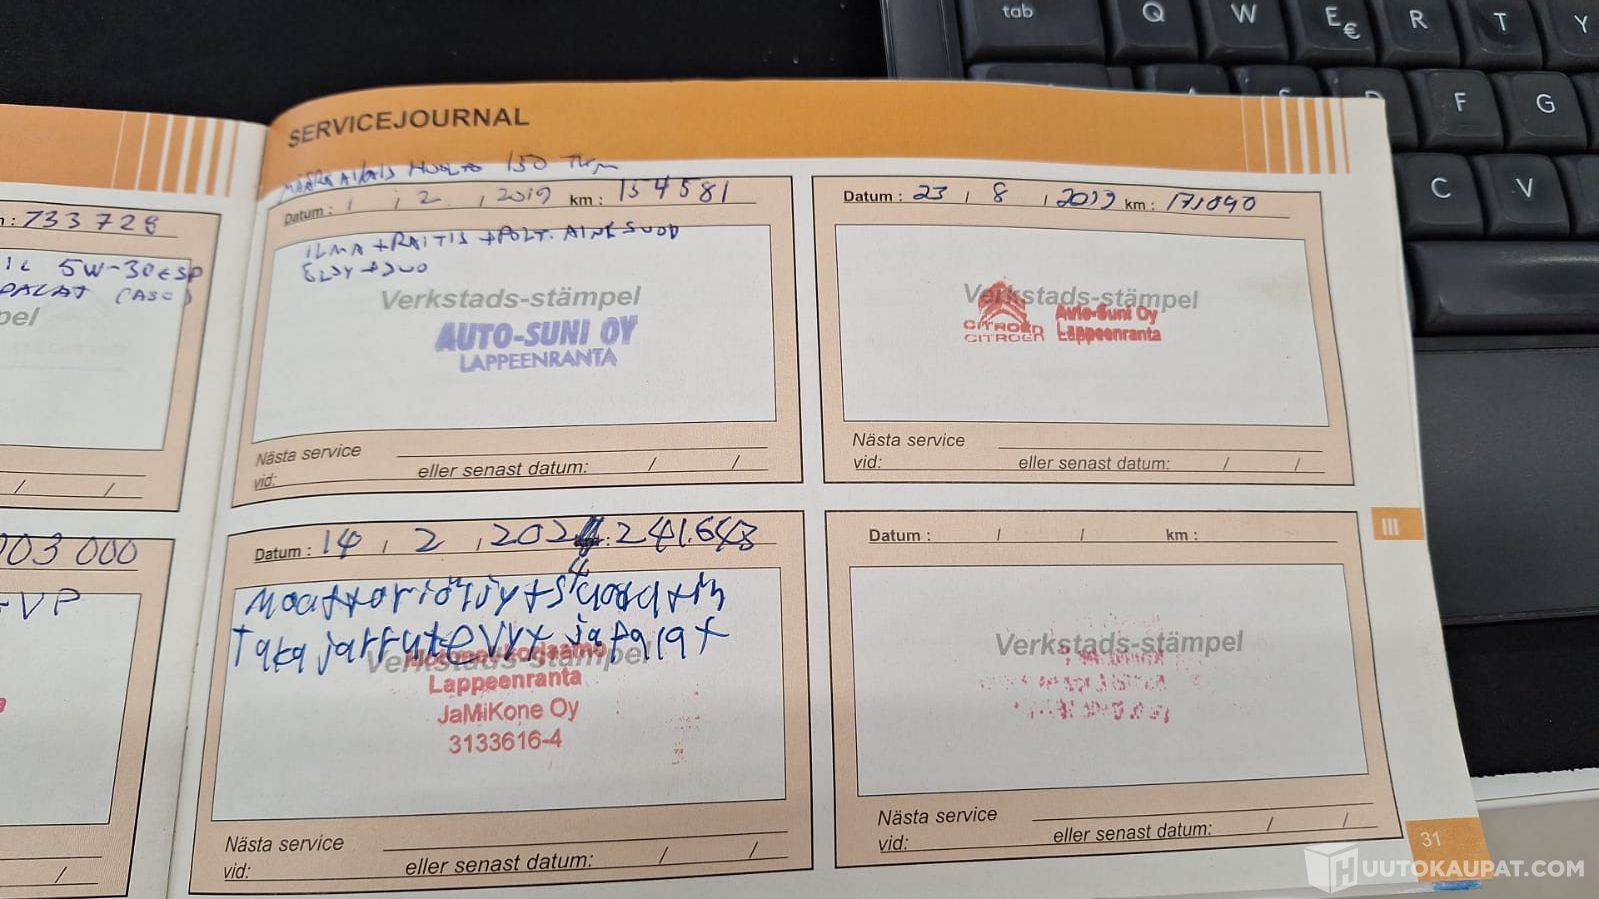 tab Q W E € R T Y
F G
C V
SERVICEJOURNAL
HUOLTO 150 Tkm
Datum : 1 / 2 / 2019 km : 154581
ILMA + RAITIS + POLT. AINE SUOD
Verkstads-stämpel
AUTO-SUNI OY
LAPPEENRANTA
Nästa service
vid:
eller senast datum: / /
Datum : 23 / 8 / 2019 km : 171090
Verkstads-stämpel
CITROËN Auto-Suni Oy
CITROËN Lappeenranta
Nästa service
vid:
eller senast datum: / /
: 733728
5W-30 ESP
PALAT
pel
/ /
003 000
/
Datum : 14 / 2 / 2024 : 241.648
4
Moottoriöljy +
Taka jarrulevyt ja palat
Verkstads-stämpel
Lappeenranta
JaMiKone Oy
3133616-4
Nästa service
vid:
eller senast datum: / /
Datum : / / km :
Verkstads-stämpel
Nästa service
vid:
eller senast datum: / /
III
31
HUUTOKAUPAT.COM